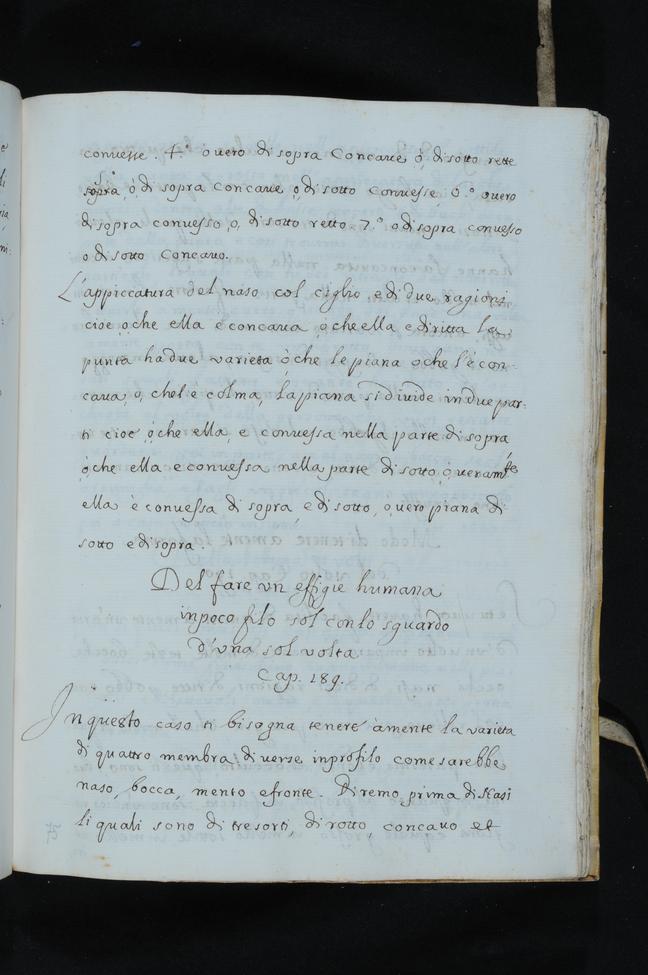 convesse. 4.° overo di sopra Concave, ó, di sotto rette
sopra, ò, di sopra concave, o, di sotto convesse 6.° overo
di sopra convesso, o, di sotto retto 7.° o di sopra convesso
o di sotto Concavo.
L'appiccatura del naso col ciglio, e di due ragioni
cioe, o, che ella è concava, o che ella e diritta la
punta ha due varieta ò che le piana o che l'è con-
cava, o, chel'è colma, la piana si divide in due par-
ti cioe o che ella, e convessa nella parte di sopra
ò che ella e convessa nella parte di sotto, o veram.te
ella è convessa di sopra, e di sotto, overo piana di
sotto e di sopra.
Del fare vn effigie humana
in poco filo sol con lo sguardo
d'vna sol volta
Cap. 189.
In questo caso ti bisogna tenere àmente la varieta
di quattro membra diverse inprofilo come sarebbe
naso, bocca, mento e fronte. Diremo prima di Nasi
li quali sono di tre sorti, di rotto, concavo et